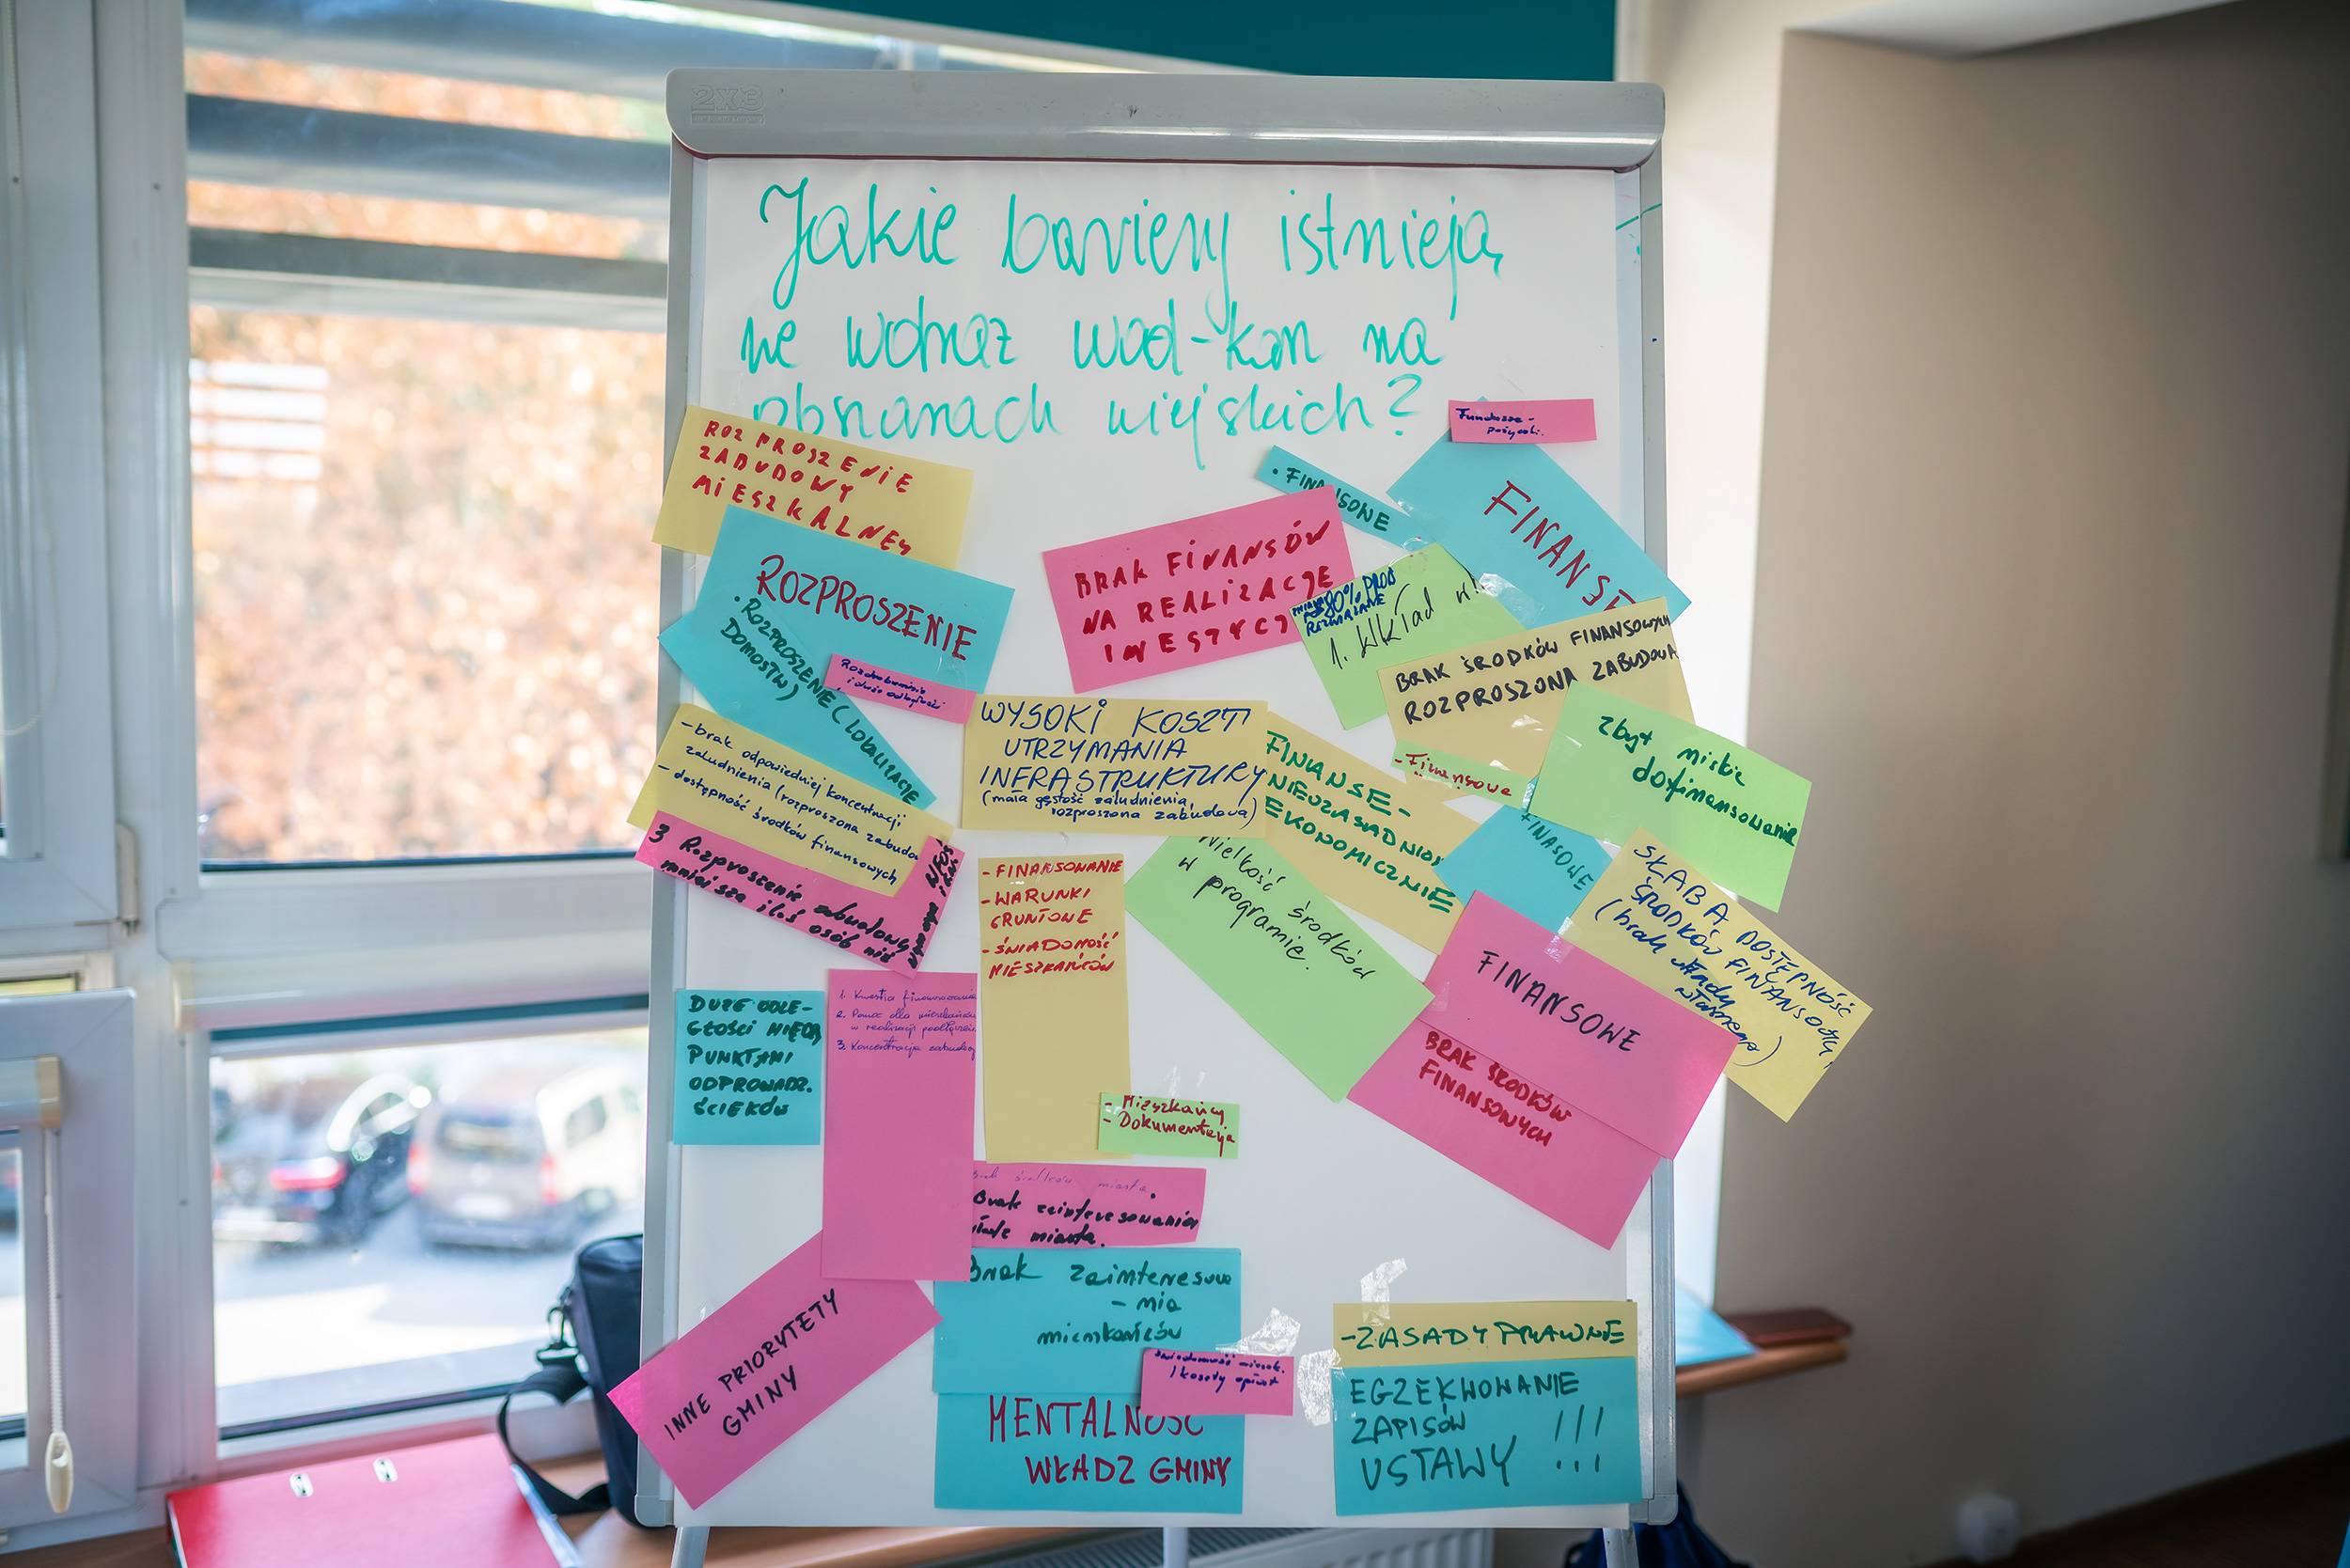 2X3
Jakie bariery istnieją
we wdraż wod-kan na
obszarach wiejskich?
Fundusze -
pożyczki.
ROZPROSZENIE
ZABUDOWY
MIESZKALNEJ
ROZPROSZENIE
• ROZPROSZENIE (LOKALIZACJE
DOMOSTW)
Rozdrobnienie
i duże odległości
• FINANSOWE
FINANSE
BRAK FINANSÓW
NA REALIZACJE
INWESTYCJ
80% PROB
ROZWIĄZANE
1. Wkład w!
BRAK ŚRODKÓW FINANSOWYCH
ROZPROSZONA ZABUDOWA
- Finansowe
zbyt niskie
dofinansowanie
- brak odpowiedniej koncentracji
zaludnienia (rozproszona zabudo
- dostępność środków finansowych
3 Rozproszenie zabudowy
mniejsza iloś osób niż
WYSOKI KOSZT
UTRZYMANIA
INFRASTRUKTURY
(mała gęstość zaludnienia,
rozproszona zabudowa)
FINANSE -
NIEUZASADNION
EKONOMICZNIE
FINASOWE
SŁABA DOSTĘPNOŚĆ
ŚRODKÓW FINANSOWY
(brak wkładu
własnego)
- FINANSOWANIE
- WARUNKI
GRUNTOWE
- ŚWIADOMOŚĆ
MIESZKAŃCÓW
Wielkość środków
w programie.
FINANSOWE
BRAK ŚRODKÓW
FINANSOWYCH
DUŻE ODLE-
GŁOŚCI MIĘDZY
PUNKTAMI
ODPROWADZ.
ŚCIEKÓW
1. Kwestia finansowania
2. Pomoc dla mieszkańców
w realizacji podłączenia
3. Koncentracja zabudowy
- Mieszkańcy
- Dokumentacja
Brak środków miasta.
Brak zainteresowania
miasta.
Brak zainteresowa
- nia
mieszkańców
świadomość mieszk.
/ koszty opłat
INNE PRIORYTETY
GMINY
MENTALNOŚĆ
WŁADZ GMINY
- ZASADY PRAWNE
EGZEKWOWANIE
ZAPISÓW
USTAWY !!!